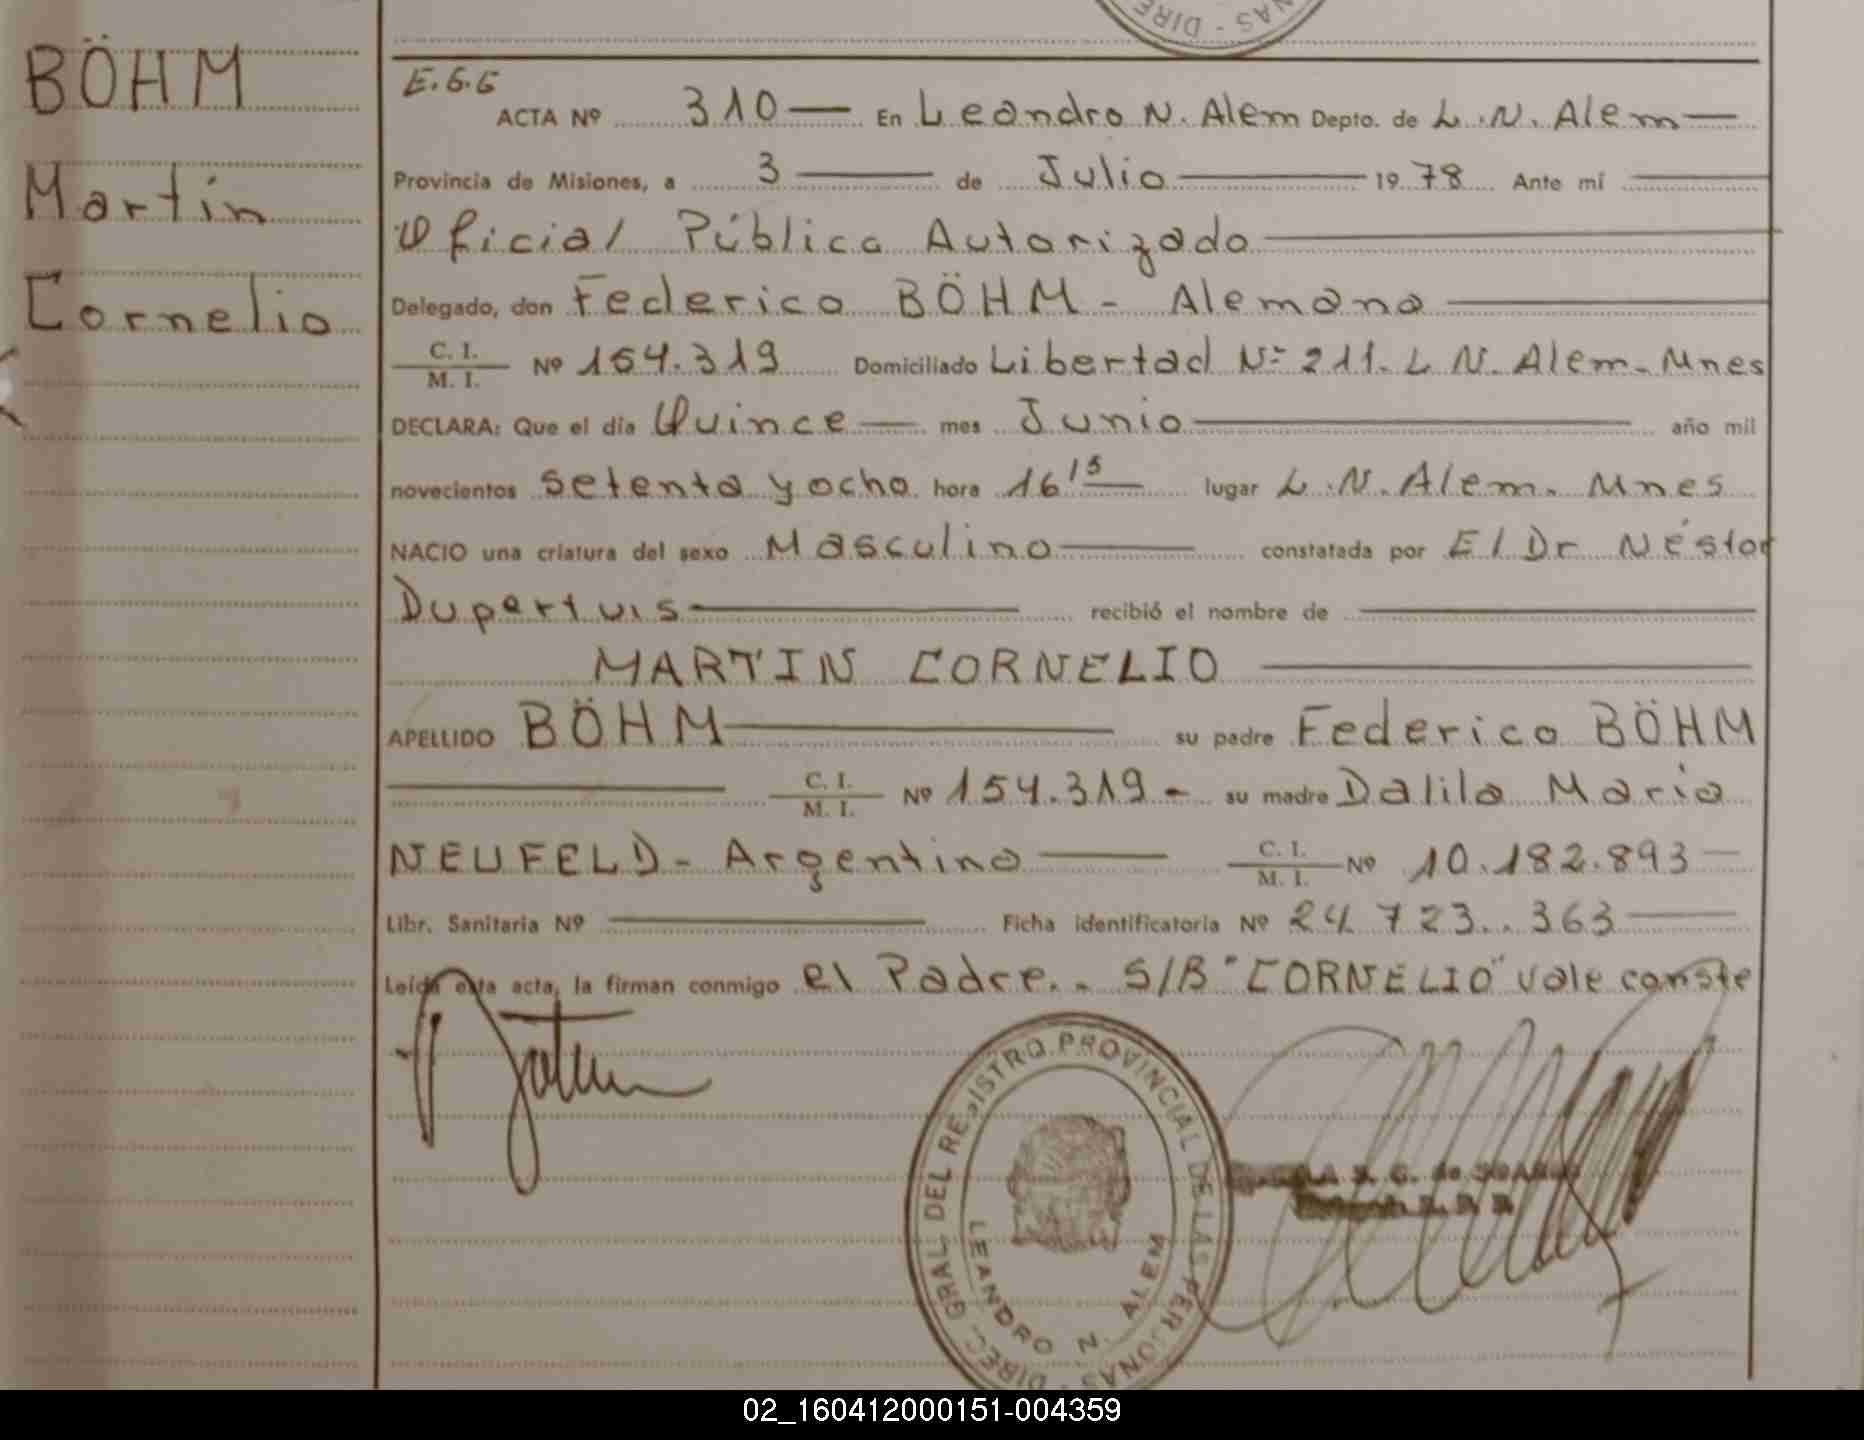 BÖHM
Martín
Cornelio
NAS - DIRE
E.G.G
ACTA Nº 310 — En Leandro N. Alem Depto. de L.N. Alem —
Provincia de Misiones, a 3 — de Julio — 19 78 Ante mí —
Oficial Público Autorizado —
Delegado, don Federico BÖHM - Alemana —
C. I. / M. I. Nº 154.319 Domiciliado Libertad Nº 211. L N. Alem. Mnes
DECLARA: Que el día Quince — mes Junio — año mil
novecientos setenta y ocho hora 16 15 — lugar L.N. Alem. Mnes
NACIO una criatura del sexo Masculino — constatada por El Dr Néstor
Dupertuis — recibió el nombre de —
MARTIN CORNELIO —
APELLIDO BÖHM — su padre Federico BÖHM
— C. I. / M. I. Nº 154.319 - su madre Dalila Maria
NEUFELD - Argentina — C. I. / M. I. Nº 10.182.893 —
Libr. Sanitaria Nº — Ficha identificatoria Nº 24.723..363 —
Leída esta acta, la firman conmigo el Padre.. S/B "CORNELIO" vale conste
DIREC. GRAL. DEL REGISTRO PROVINCIAL DE LAS PERSONAS
LEANDRO N. ALEM
02_160412000151-004359